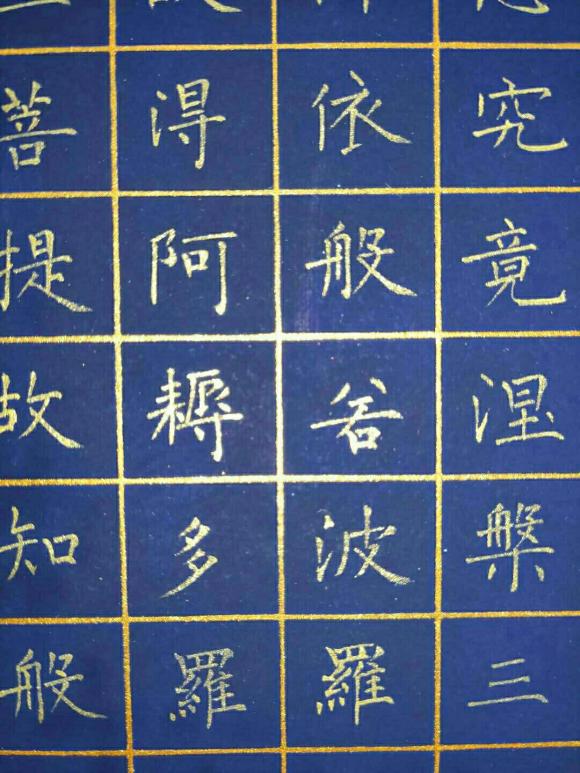 究竟涅槃三
依般若波羅
得阿耨多羅
菩提故知般